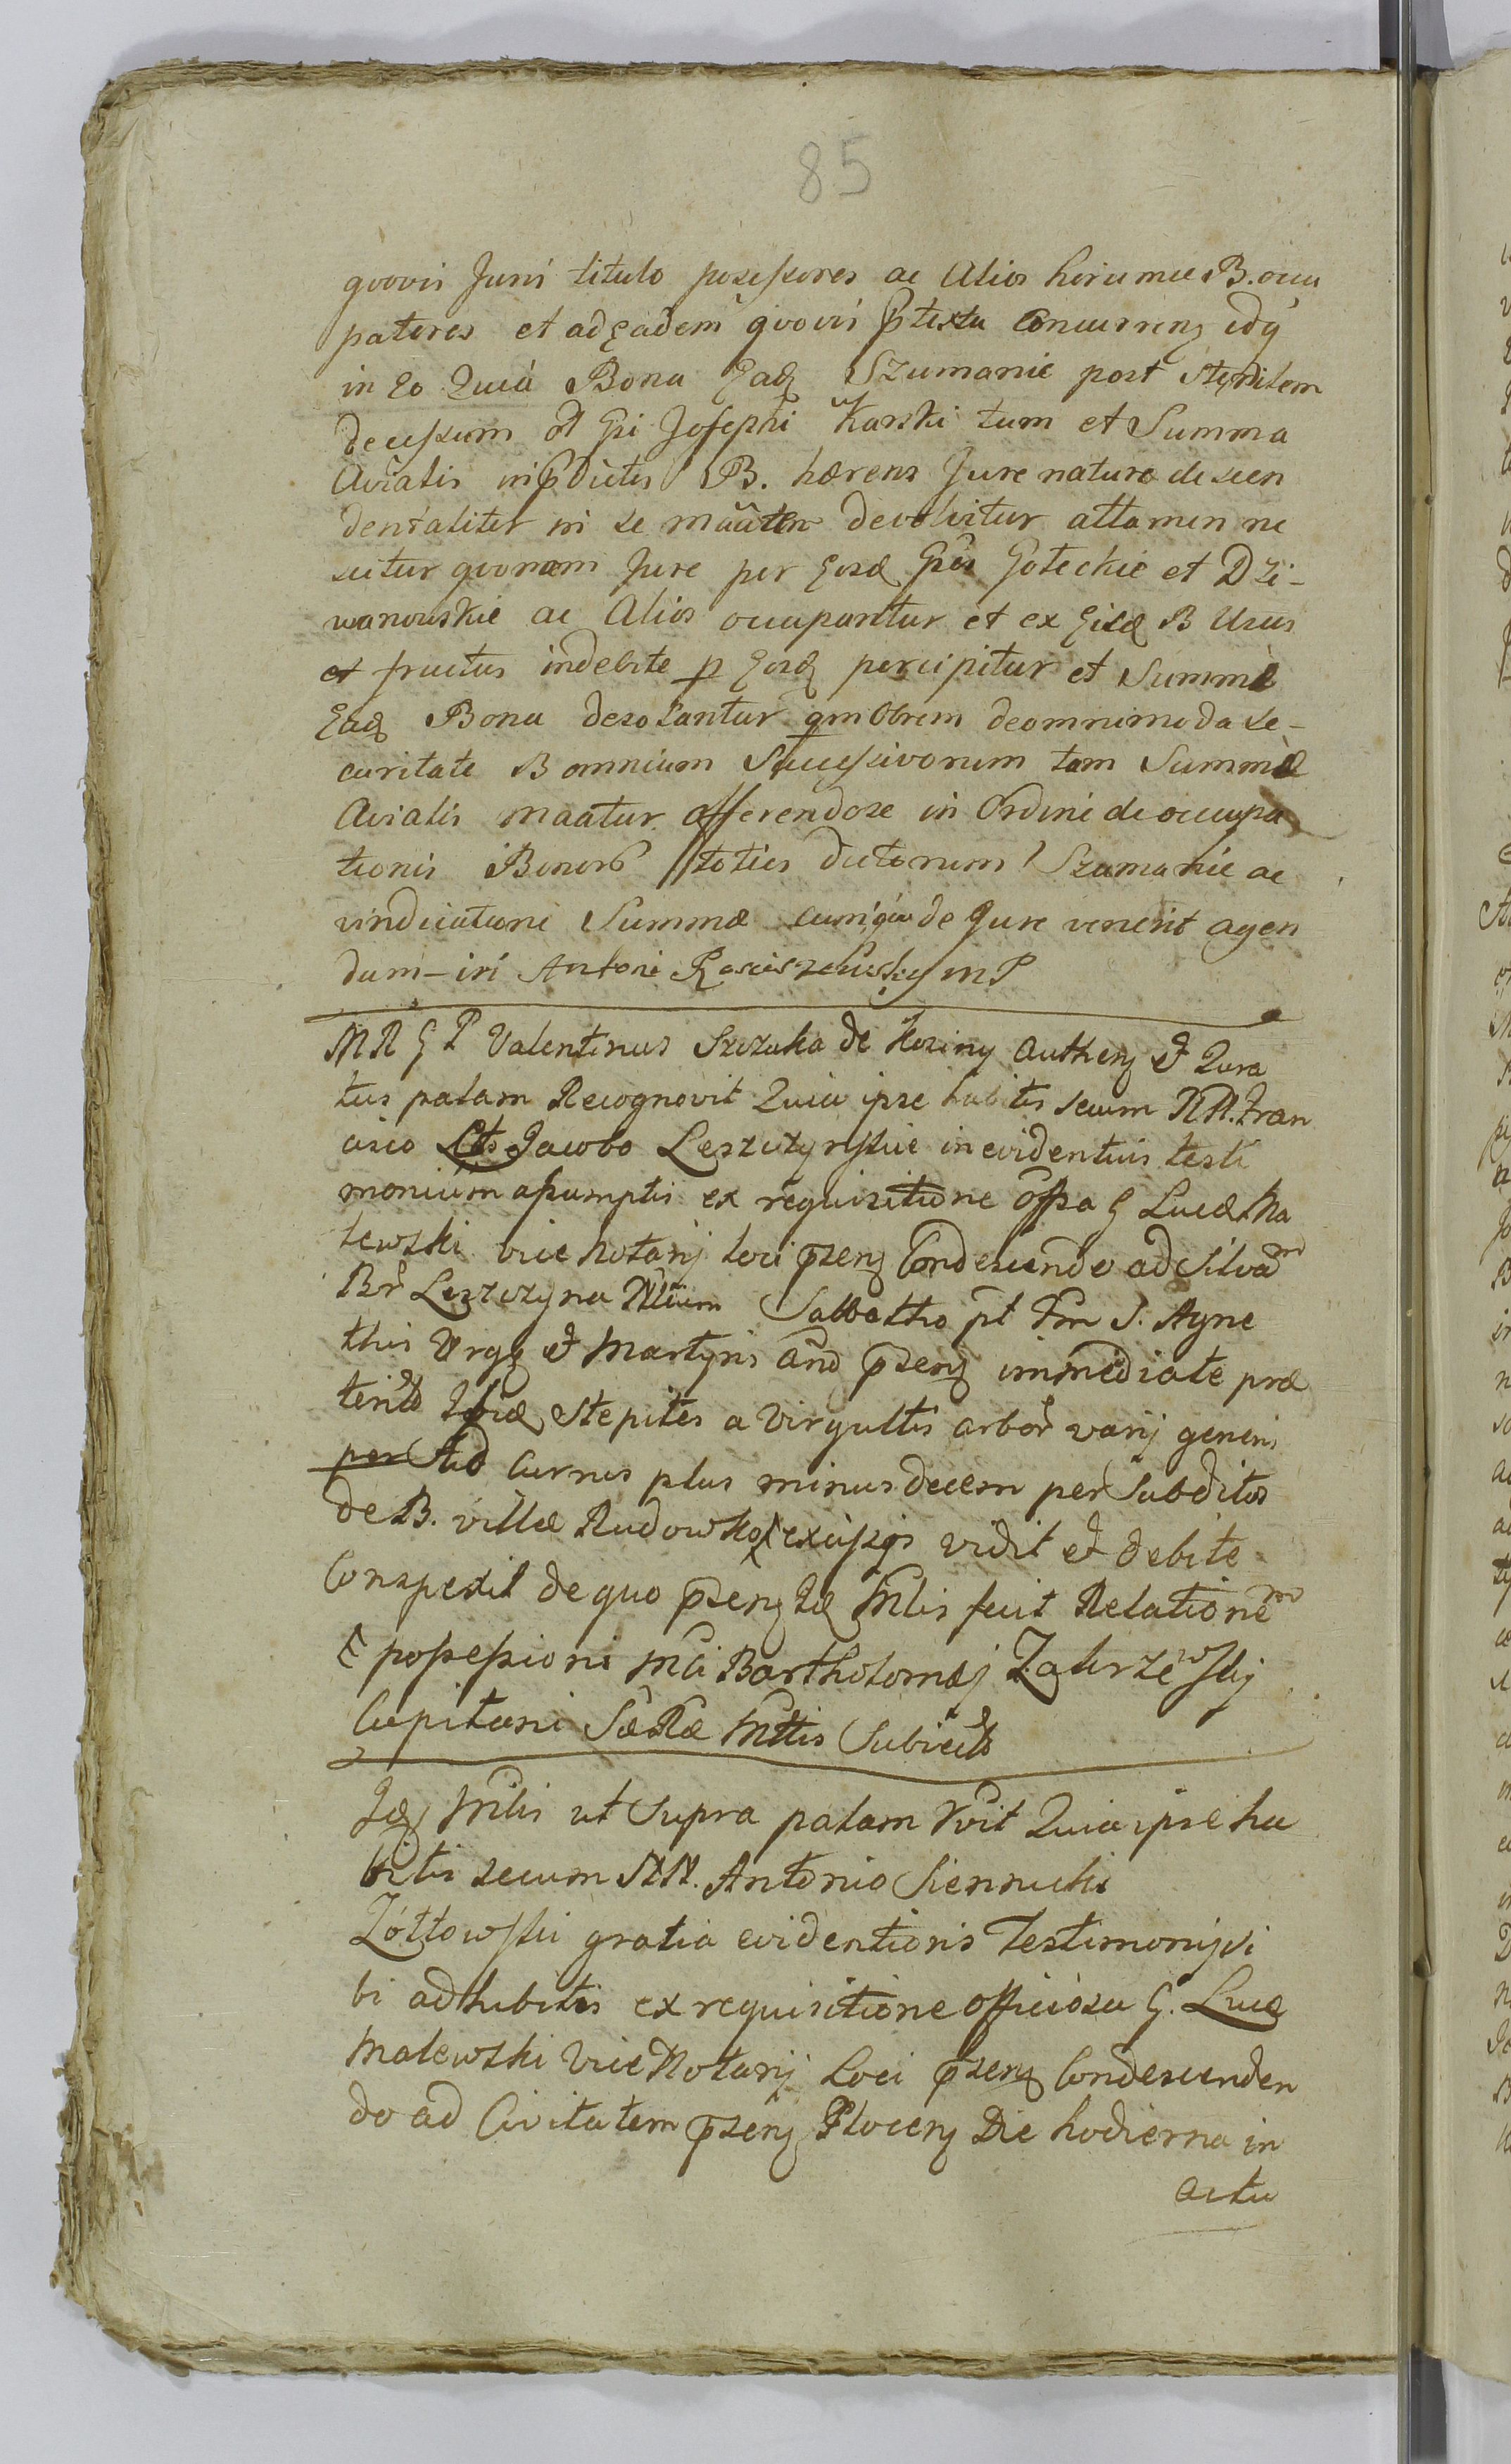 85
qvovis Juris titulo possessores ac Alios horumce B. occu
patores et ad Eadem qvovis ptextu Concurrenz idq
in Eo Quia Bona Eadz Szumanie post Sterilem
decessum ol Gsi Josephi Karski tum et Summa
Avialis in pdictis B. hærens Jure naturæ descen
dentaliter in se maaten devolvitur attamen ne
scitur qvonam Jure per Eosd Gsos Goleckie et Dzi-
wanowskie ac Alios occupantur et ex Eisd B Usus
et fructus indebite p Eosdz percipitur et Summe
Eadz Bona desolantur qm Obrem de omnimoda se-
curitate B omnium Successivorum tam Summæ
Avialis maatur offerendose in Ordine de occupa
tionis Bonor toties dictorum Szumanie ac
vindicatione Summæ cum qvo de Jure venerit agen
dum-iri Antoni Rosciszewsky mP
MR G P Valentinus Szczuka de Koziny Authenz & Jura
tus palam Recognovit Quia ipse habitis secum NN. Fran
cisco Jacobo Leszczynskie in evidentius testi
monium assumptis ex requisitione offsa G Lucæ Ma
lewski vice Notarij loci psenz Condescendo ad Silvam
Br Leszczyna Sabbatho pt Fm S. Agne
this Vrgz & Martyris and psenz immediate præ
terito Stepites a Virgultis arbor varij generis
per Ad Currus plus minus decem per Subditos
de B. villæ Rudowko excissos vidit & debite
Conspexit de quo psenz Idz Mnlis fecit Relationem
E possessioni Mci Bartholomæj Zakrzewskij
Capitani SæRæ Mttis Subiecto
Idz Mnlis ut Supra palam Rvit Quia ipse ha
bitis secum NN. Antonio Siennicki
Żółtowski gratia evidentioris Testimonij si
bi adhibitis ex requisitione officiosa G. Lucæ
Malewski Vice Notarij Loci psenz Condescenden
do ad Civitatem psenz Plocenz Die hodierna in
actu